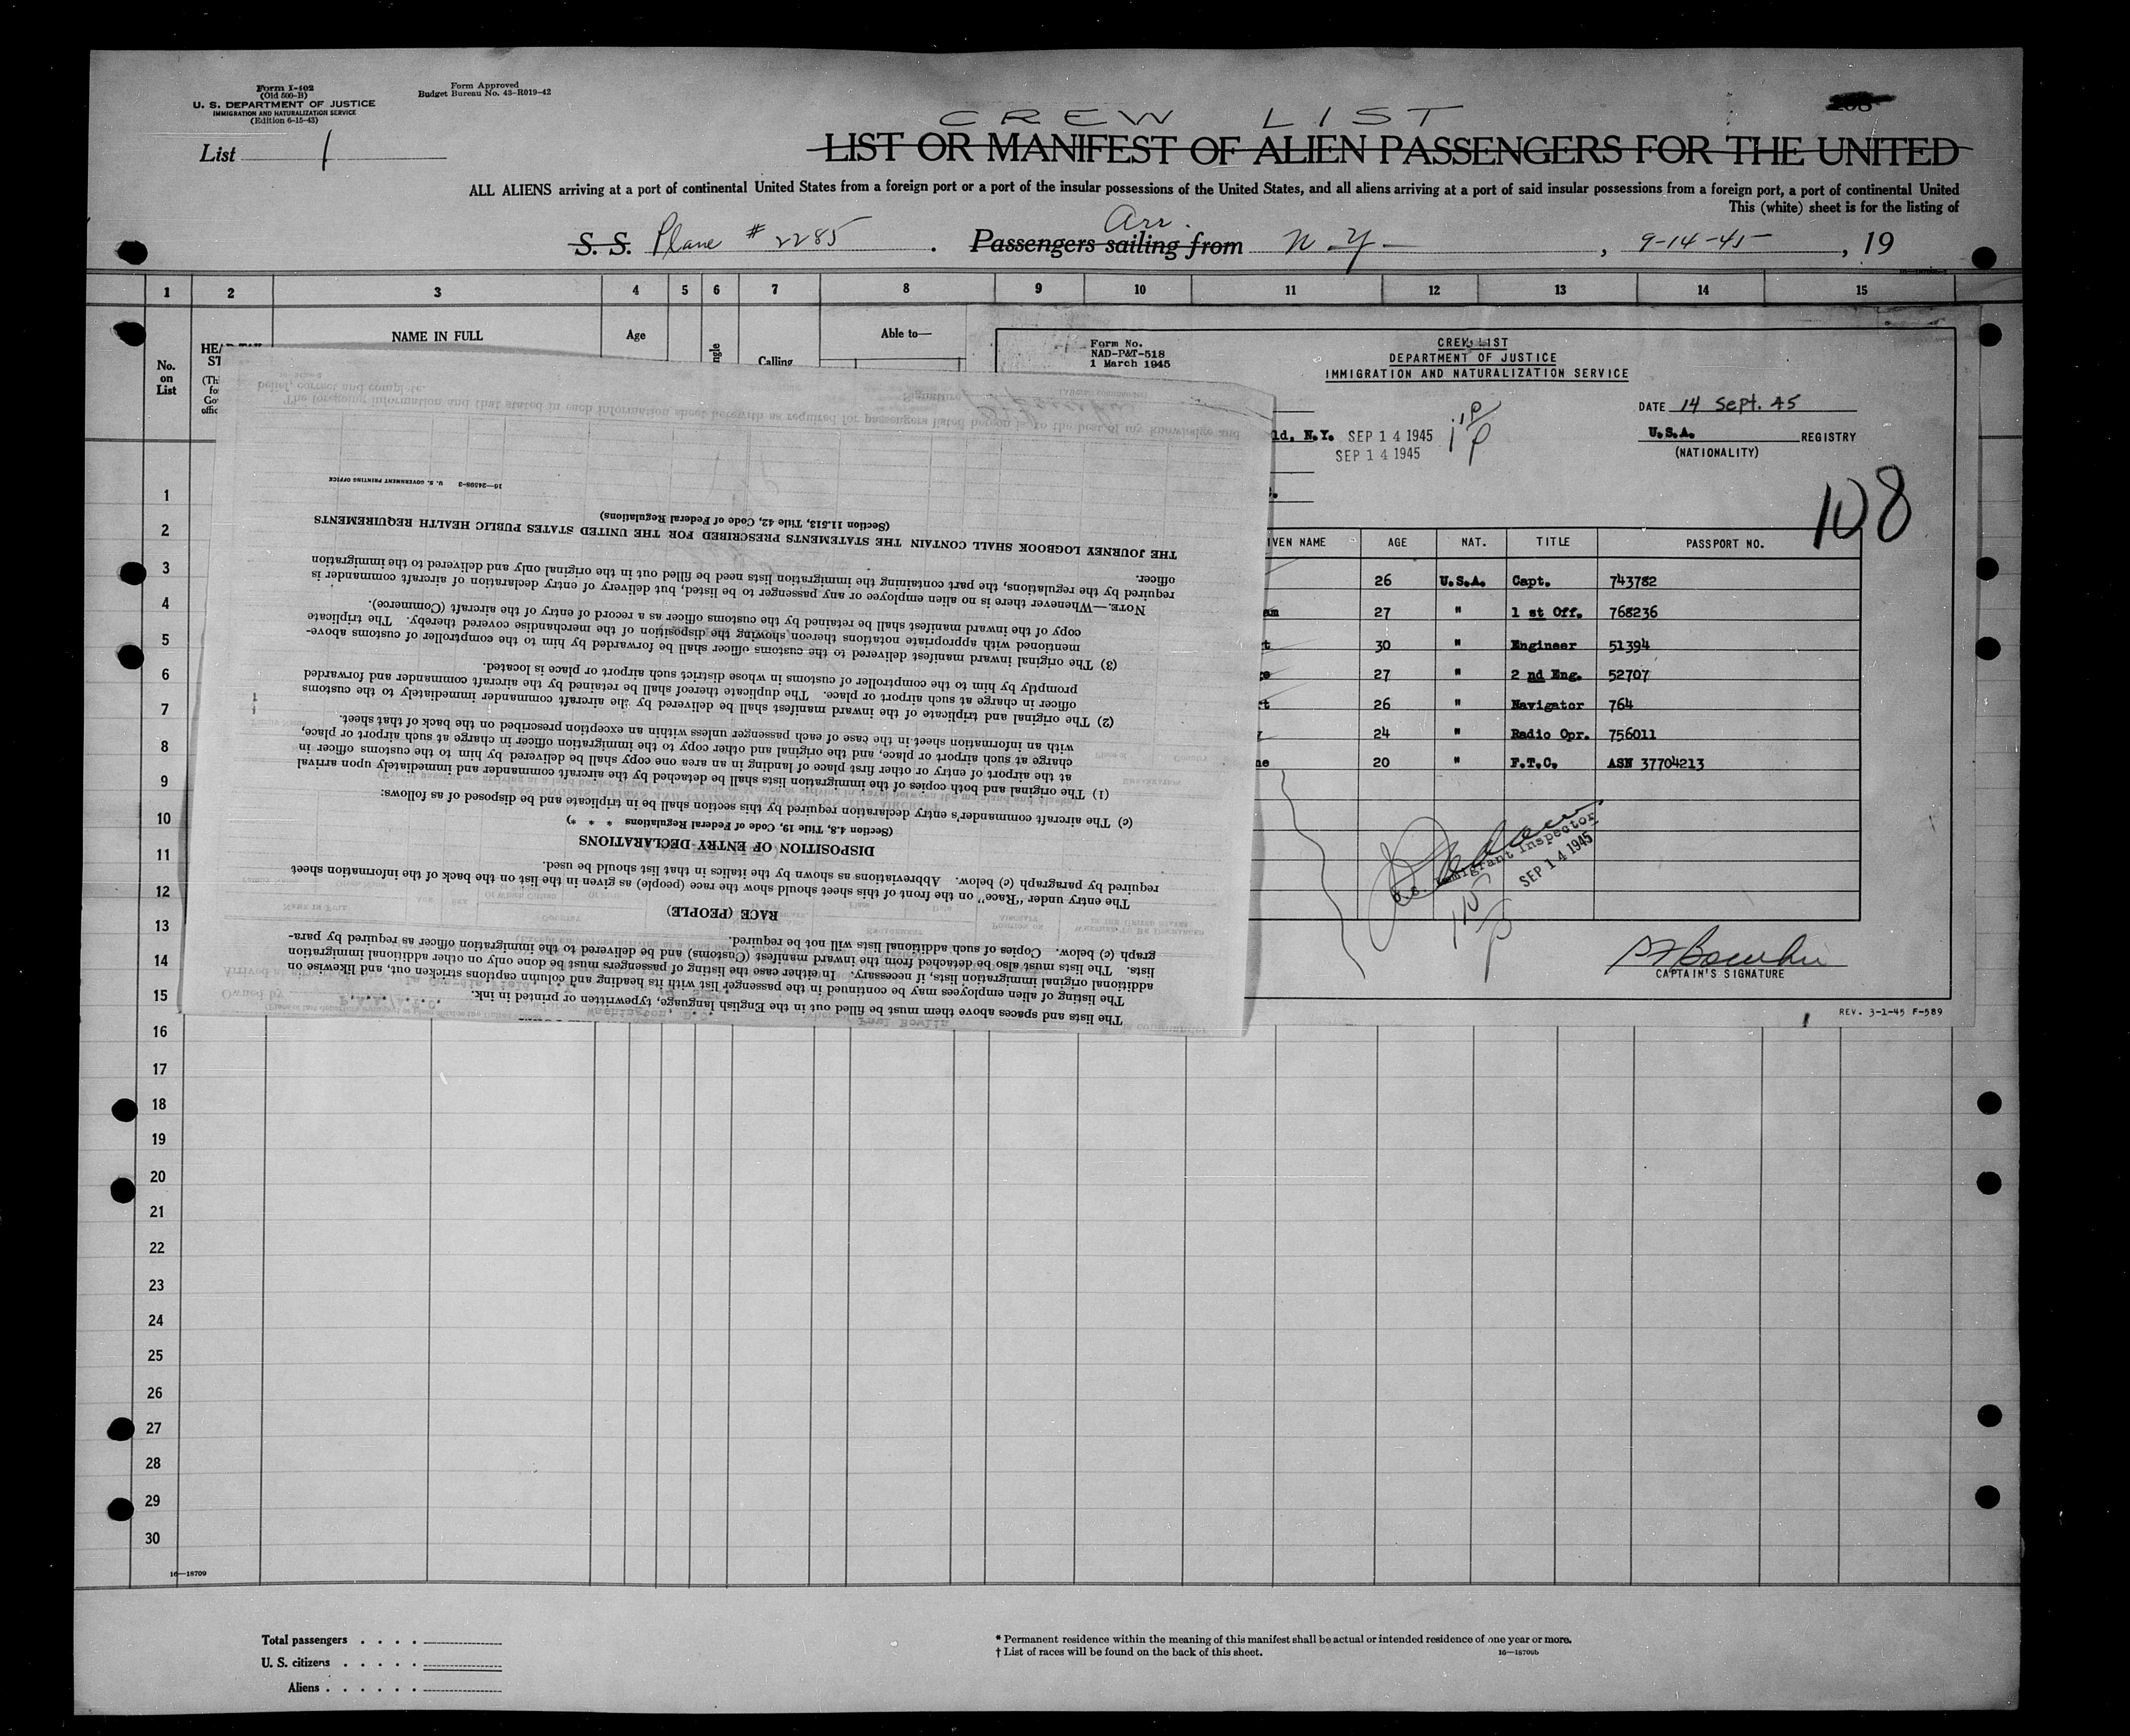 Form I-402
(Old 500-B)
U. S. DEPARTMENT OF JUSTICE
IMMIGRATION AND NATURALIZATION SERVICE
(Edition 6-15-43)
Form Approved
Budget Bureau No. 43-R019-42
List 1
CREW LIST
LIST OR MANIFEST OF ALIEN PASSENGERS FOR THE UNITED
ALL ALIENS arriving at a port of continental United States from a foreign port or a port of the insular possessions of the United States, and all aliens arriving at a port of said insular possessions from a foreign port, a port of continental United
This (white) sheet is for the listing of
Arr.
S. S. Plane # 2285 . Passengers sailing from N.Y. , 9-14-45 , 19
1 2 3 4 5 6 7 8 9 10 11 12 13 14 15
No.
on
List
NAME IN FULL
Age
Calling
Able to—
Form No.
NAD-P&T-518
1 March 1945
CREW LIST
DEPARTMENT OF JUSTICE
IMMIGRATION AND NATURALIZATION SERVICE
DATE 14 Sept. 45
ld, N.Y. SEP 14 1945
SEP 14 1945
U.S.A. REGISTRY
(NATIONALITY)
108
IVEN NAME AGE NAT. TITLE PASSPORT NO.
26 U.S.A. Capt. 743782
am 27 " 1 st Off. 768236
t 30 " Engineer 51394
ce 27 " 2 nd Eng. 52707
t 26 " Navigator 764
24 " Radio Opr. 756011
ne 20 " F.T.C. ASN 37704213
U.S. Immigrant Inspector
SEP 14 1945
CAPTAIN'S SIGNATURE
REV. 3-1-45 F-589
The lists and spaces above them must be filled out in the English language, typewritten or printed in ink.
The listing of alien employees may be continued in the passenger list with its heading and column captions stricken out, and likewise on
additional original immigration lists, if necessary. In either case the listing of passengers must be done only on other additional immigration
lists. The lists must also be detached from the inward manifest (Customs) and be delivered to the immigration officer as required by para-
graph (c) below. Copies of such additional lists will not be required.
RACE (PEOPLE)
The entry under "Race" on the front of this sheet should show the race (people) as given in the list on the back of the information sheet
required by paragraph (c) below. Abbreviations as shown by the italics in that list should be used.
DISPOSITION OF ENTRY DECLARATIONS
(Section 4.8, Title 19, Code of Federal Regulations * * *)
(c) The aircraft commander's entry declaration required by this section shall be in triplicate and be disposed of as follows:
(1) The original and both copies of the immigration lists shall be detached by the aircraft commander and immediately upon arrival
at the airport of entry or other first place of landing in an area one copy shall be delivered by him to the customs officer in
charge at such airport or place, and the original and other copy to the immigration officer in charge at such airport or place,
with an information sheet in the case of each passenger unless within an exception prescribed on the back of that sheet.
(2) The original and triplicate of the inward manifest shall be delivered by the aircraft commander immediately to the customs
officer in charge at such airport or place. The duplicate thereof shall be retained by the aircraft commander and forwarded
promptly by him to the comptroller of customs in whose district such airport or place is located.
(3) The original inward manifest delivered to the customs officer shall be forwarded by him to the comptroller of customs above-
mentioned with appropriate notations thereon showing the disposition of the merchandise covered thereby. The triplicate
copy of the inward manifest shall be retained by the customs officer as a record of entry of the aircraft (Commerce).
NOTE.—Whenever there is no alien employee or any passenger to be listed, but delivery of entry declaration of aircraft commander is
required by the regulations, the part containing the immigration lists need be filled out in the original only and delivered to the immigration
officer.
THE JOURNEY LOGBOOK SHALL CONTAIN THE STATEMENTS PRESCRIBED FOR THE UNITED STATES PUBLIC HEALTH REQUIREMENTS
(Section 11.513, Title 42, Code of Federal Regulations)
16—24598-3 U. S. GOVERNMENT PRINTING OFFICE
The foregoing information and that stated in each information sheet herewith as required for passengers listed hereon is to the best of my knowledge and
belief, correct and complete.
Signature
1
2
3
4
5
6
7
8
9
10
11
12
13
14
15
16
17
18
19
20
21
22
23
24
25
26
27
28
29
30
16—18709
Total passengers . . . .
U. S. citizens . . . . .
Aliens . . . . . .
* Permanent residence within the meaning of this manifest shall be actual or intended residence of one year or more.
† List of races will be found on the back of this sheet.
16—18709b